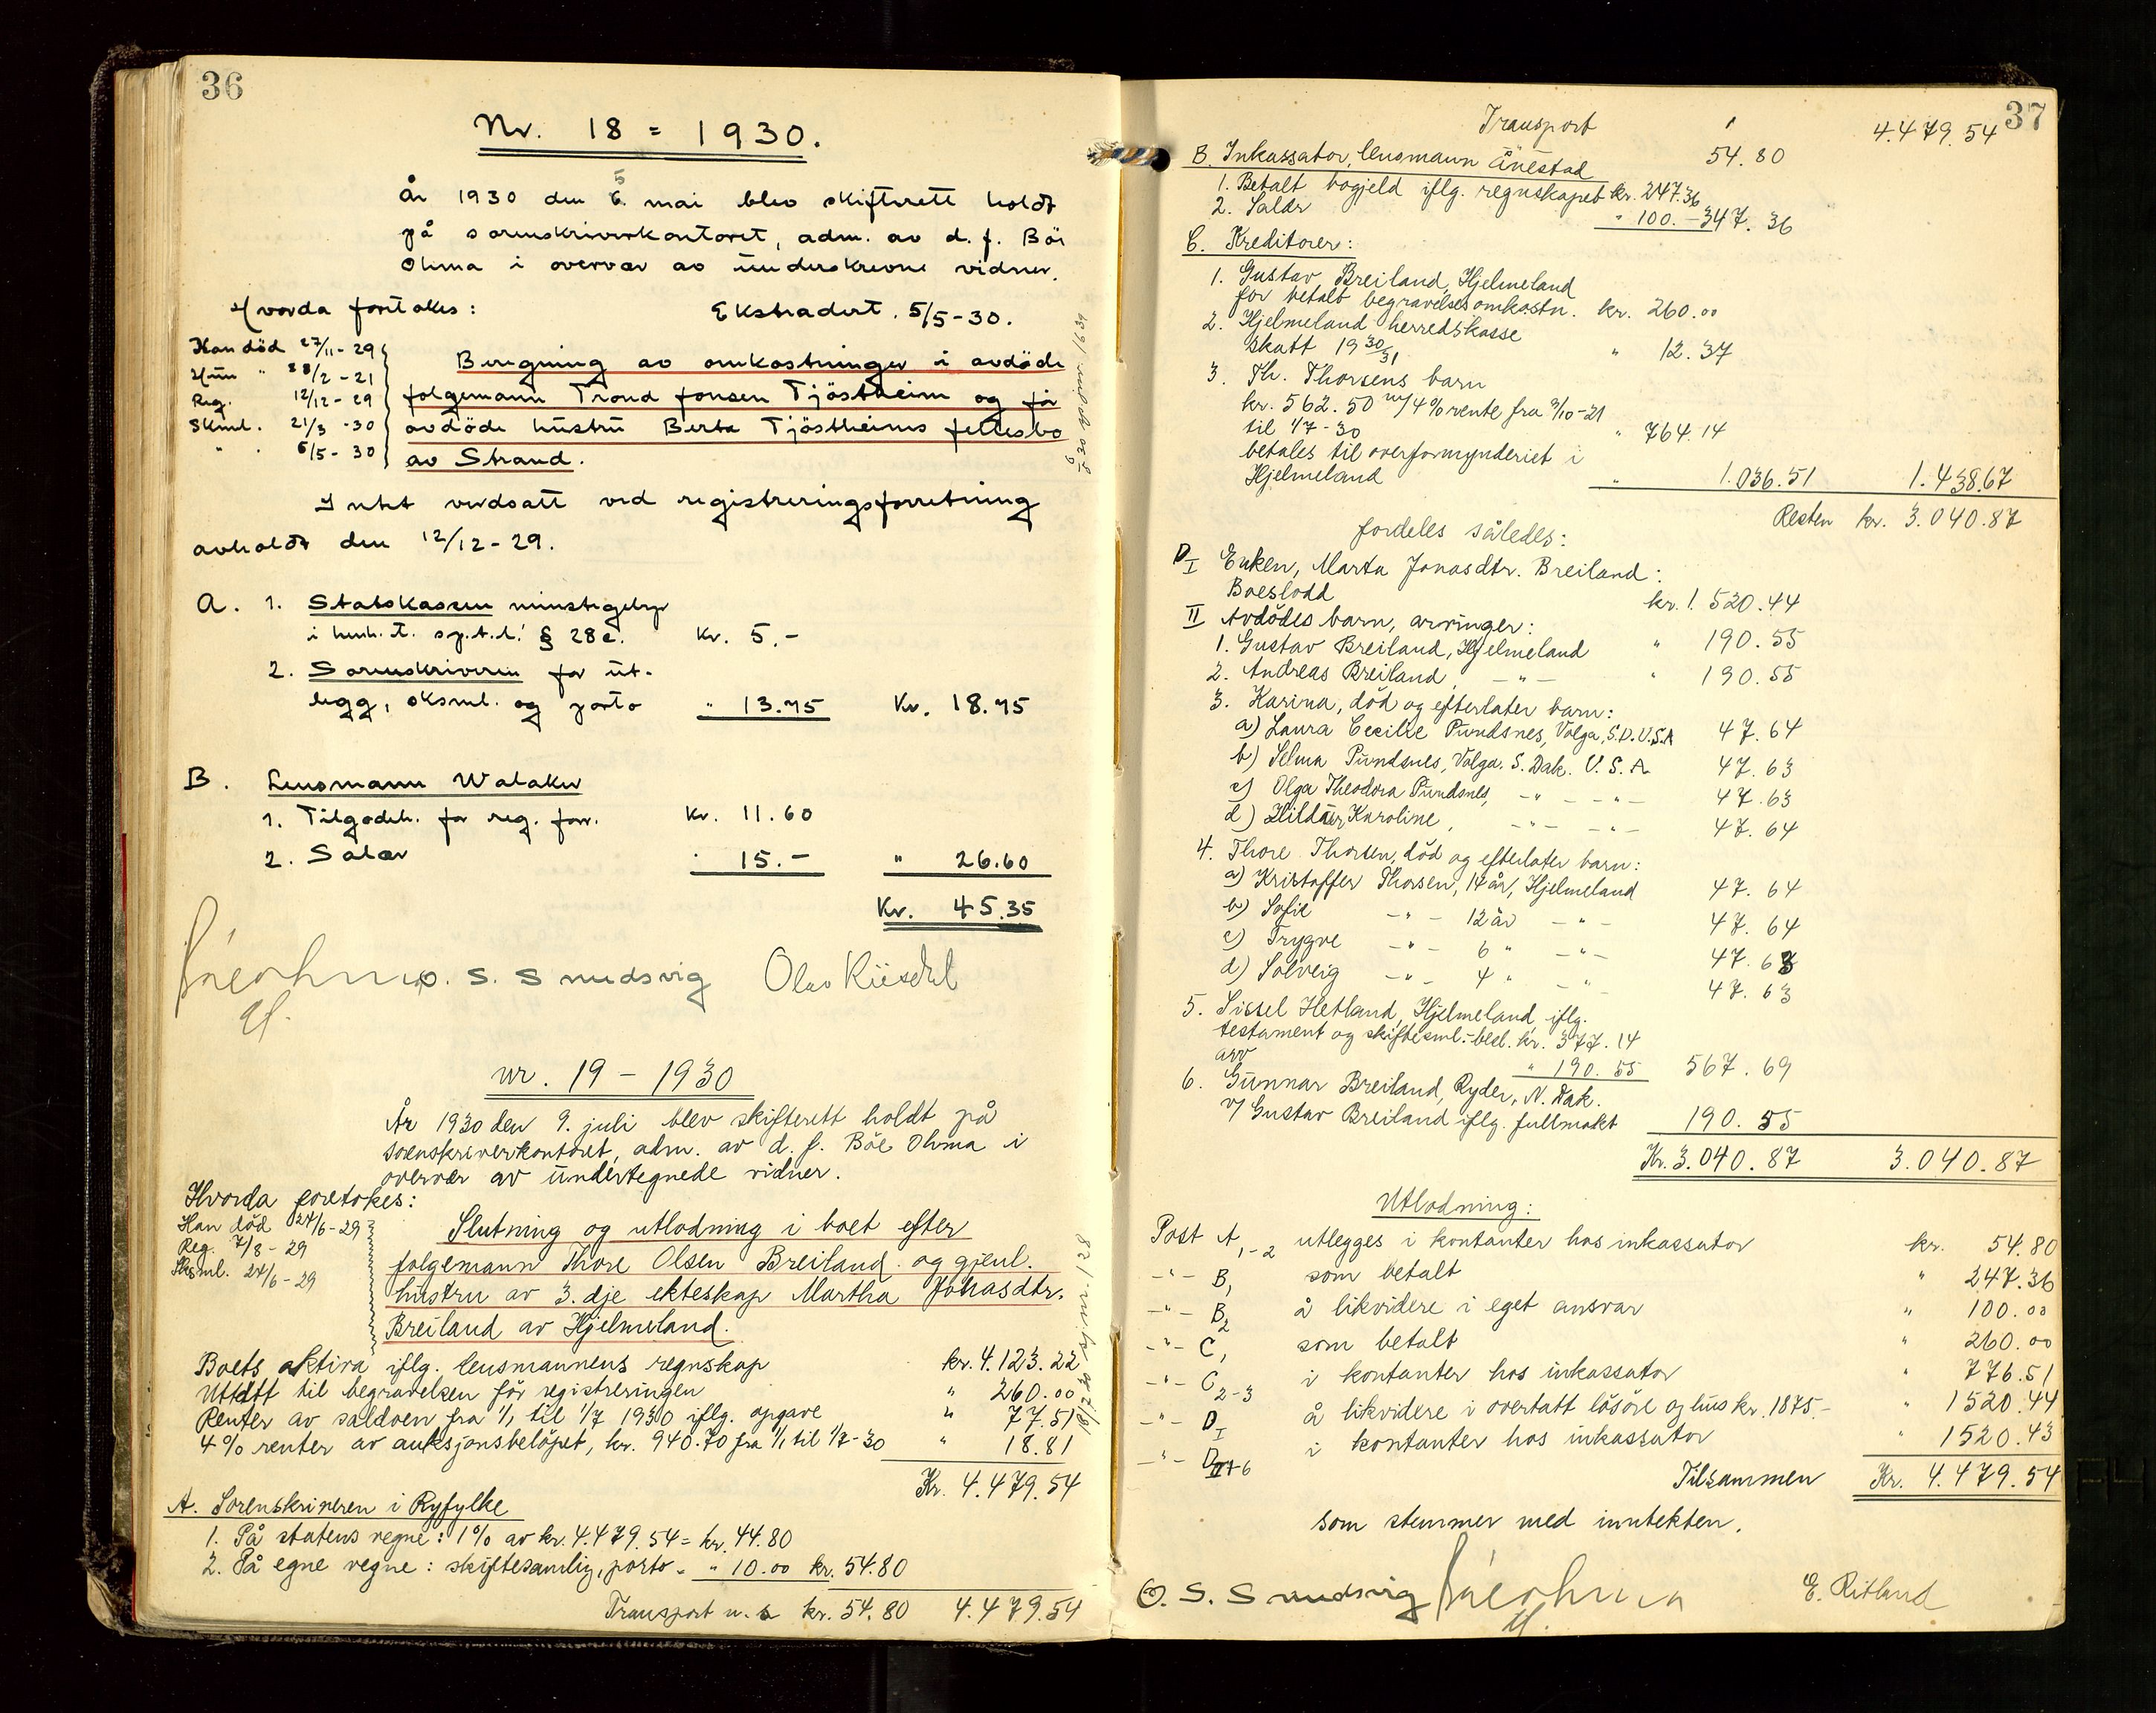 36
Nr. 18 = 1930.
År 1930 den 6. 5 mai blev skifterett holdt
på sorenskriverkontoret, adm. av d. f. Böe
Ohma i overvær av underskrevne vidner.
Hvorda foretokes: Ekstradert. 5/5-30.
Han död 27/11-29
Hun " 28/2-21
Reg. 12/12-29
Skml. 21/3-30
" . 5/5-30
Beregning av omkostninger i avdöde
folgemann Trond Jonsen Tjöstheim og för
avdöde hustru Berta Tjöstheims fellesbo
av Strand.
Intet verdsatt ved registreringsforretning
avholdt den 12/12-29.
A. 1. Statskassen minstegebyr
i henh. t. sp.t.l. § 28c. Kr. 5.-
2. Sorenskriveren for ut-
legg, sksml. og porto " 13.75 Kr. 18.75
B. Lensmann Walaker
1. Tilgodeh. for reg. forr. Kr. 11.60
2. Salær " 15.- " 26.60
Kr. 45.35
O. S. Snudsvig Olav
nr. 19 - 1930
År 1930 den 9. juli blev skifterett holdt på
sorenskriverkontoret, adm. av d. f. Böe Ohma i
overvær av undertegnede vidner.
Hvorda foretokes:
Han död 24/6-29
Reg. 7/8-29
Sksml. 24/6-29
Slutning og utlodning i boet efter
folgemann Thore Olsen Breiland og gjenl.
hustru av 3. dje ekteskap Martha Jonasdtr.
Breiland av Hjelmeland.
Boets aktiva iflg. lensmannens regnskap kr. 4.123.22
Uttatt til begravelsen för registreringen " 260.00
Renter av saldoen fra 1/1 til 1/7 1930 iflg. opgave " 77.51
4% renter av auksjonsbelöpet, kr. 940.70 fra 1/1 til 1/7-30 " 18.81
Kr. 4.479.54
A. Sorenskriveren i Ryfylke
1. På statens regne: 1% av kr. 4.479.54 = kr. 44.80
2. På egne regne: skiftesamlig, porto - " 10.00 kr. 54.80
Transport n. s kr. 54.80 4.479.54
37
Transport 54.80 4.479.54
B. Inkassator, lensmann Ånestad
1. Betalt bogjeld iflg. regnskapet kr. 247.36
2. Salær " 100.- 347.36
C. Kreditorer:
1. Gustav Breiland, Hjelmeland
for betalt begravelsesomkostn. kr. 260.00
2. Hjelmeland herredskasse
skatt 1930/31 " 12.37
3. Th. Thorsens barn
kr. 562.50 m/4% rente fra 9/10-21
til 1/7-30 " 764.14
betales til overformynderiet i
Hjelmeland " 1.036.51 1.438.67
Resten kr. 3.040.87
fordeles således:
D I Enken, Marta Jonasdtr. Breiland:
Boeslodd kr. 1.520.44
II Avdödes barn, arvinger:
1. Gustav Breiland, Hjelmeland " 190.55
2. Andreas Breiland, -"- " 190.55
3. Karina, död og efterlater barn:
a) Laura Cecilie Pundsnes, Volga, S.D. U.S.A 47.64
b) Selma Pundsnes, Volga. S. Dak. U. S. A 47.63
c) Olga Theodora Pundsnes, -"- -"- 47.63
d) Karoline, -"- -"- 47.64
4. Thore Thorsen, död og efterlater barn:
a) Kristoffer Thorsen, 14 år, Hjelmeland 47.64
b) Sofie -"- 12 år -"- 47.64
c) Trygve -"- 6 " -"- 47.63
d) Solveig -"- 4 " -"- 47.63
5. Sissel Hetland, Hjelmeland iflg.
testament og skiftesml.-besl. kr. 377.14
arv " 190.55 567.69
6. Gunnar Breiland, Ryder, N. Dak.
v/ Gustav Breiland iflg. fullmakt 190.55
Kr. 3.040.87 3.040.87
Utlodning:
Post A 1-2 utlegges i kontanter hos inkassator kr. 54.80
-"- B 1 som betalt " 247.36
-"- B 2 å likvidere i eget ansvar " 100.00
-"- C 1 som betalt " 260.00
-"- C 2-3 i kontanter hos inkassator " 776.51
-"- D I å likvidere i overtatt lösöre og hus kr. 1875.- " 1520.44
-"- D II 1-6 i kontanter hos inkassator " 1520.43
Tilsammen Kr. 4.479.54
som stemmer med inntekten.
O. S. Snudsvig E. Ritland